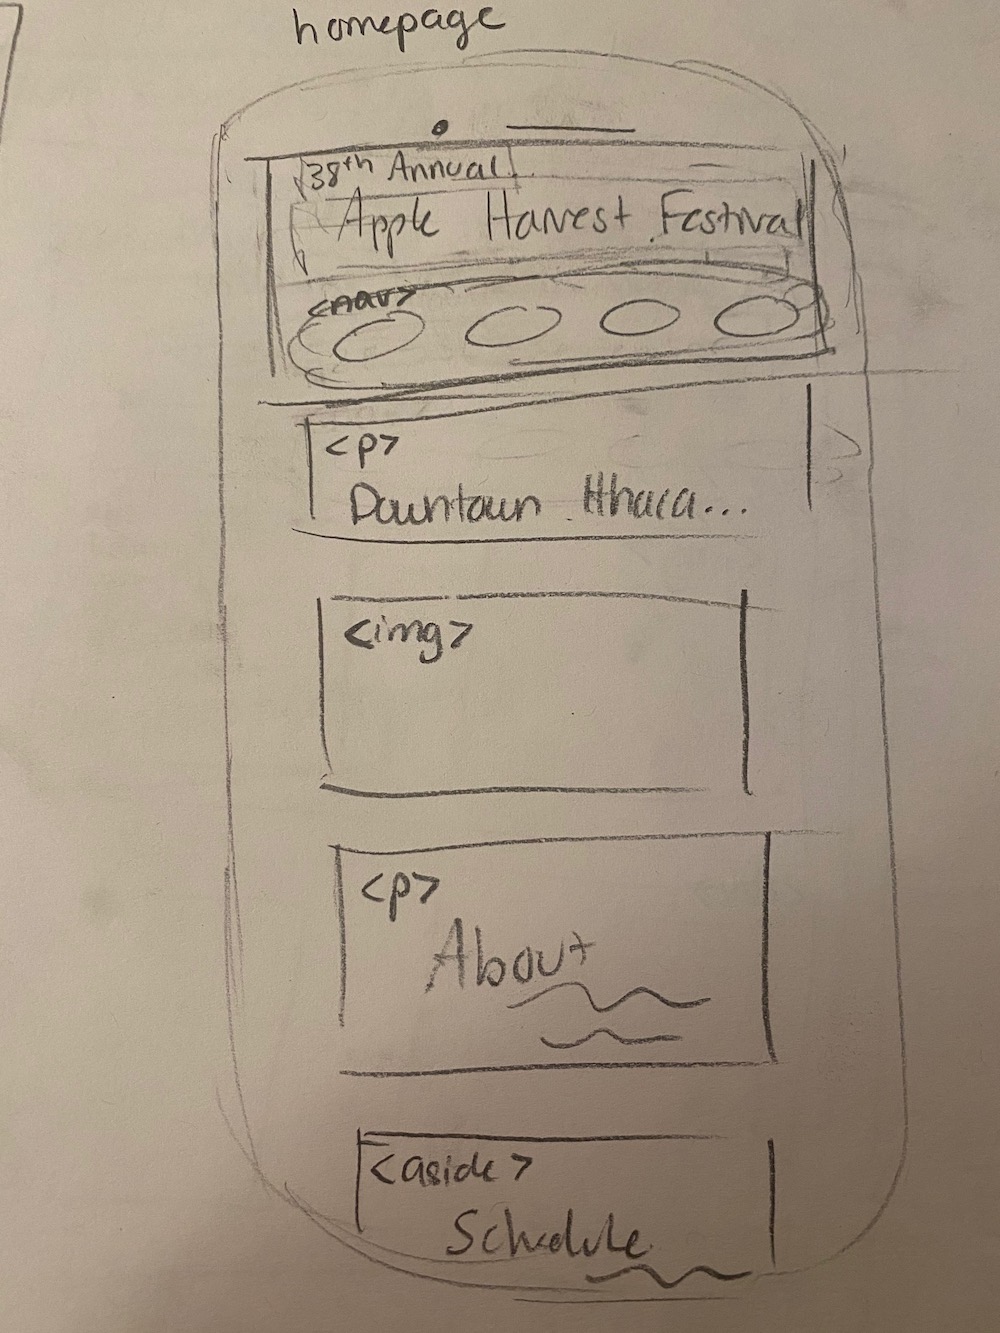 homepage
38th Annual
Apple Harvest Festival
<nav>
<p>
Downtown Ithaca...
<img>
<p>
About
<aside>
Schedule